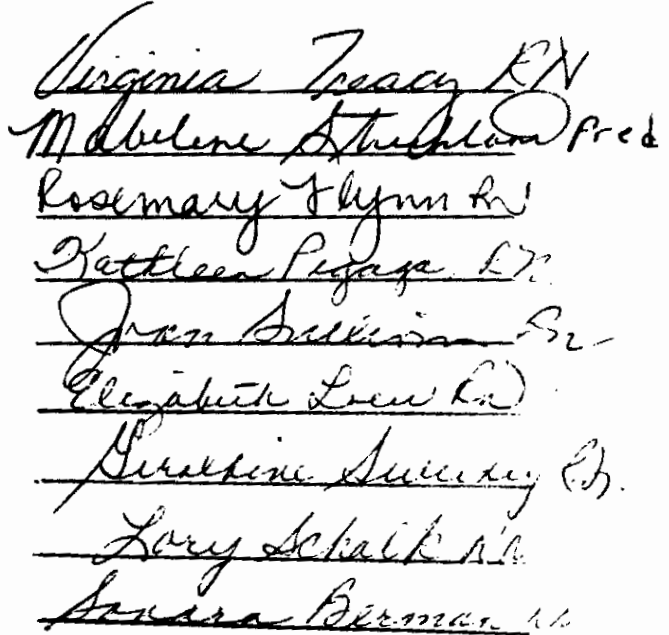 Virginia Treacy RN
Madelene Fred
Rosemary Flynn RN
Kathleen RN
Joan Sullivan
Elizabeth RN
Geraldine Sweeney RN.
Lory Schalk RN
Sandra Berman